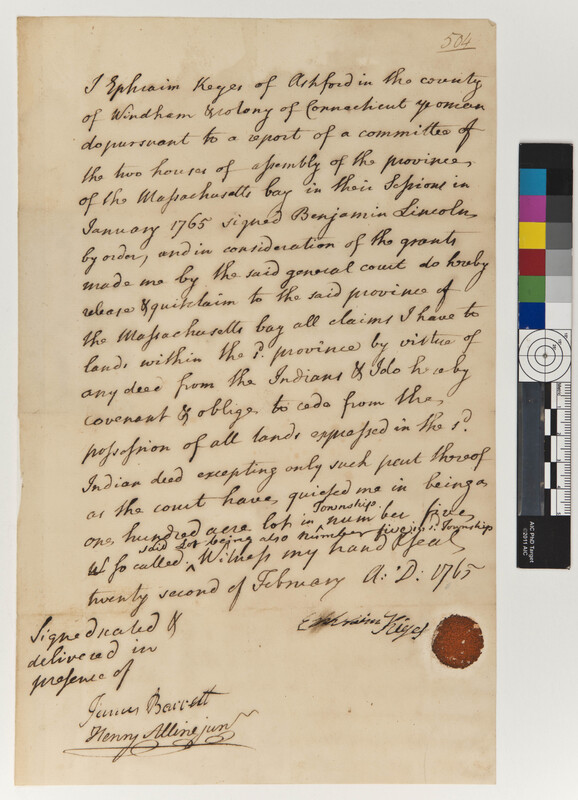 504
I Ephraim Keyes of Ashford in the county
of Windham & Colony of Connecticut yeoman
do pursuant to a report of a committee of
the two houses of assembly of the province
of the Massachusetts bay in their Sessions in
January 1765 signed Benjamin Lincoln
by order, and in consideration of the grants
made me by the said general court do hereby
release & quitclaim to the said province of
the Massachusetts bay all claims I have to
lands within the sd. province by virtue of
any deed from the Indians & I do hereby
covenant & oblige to cede from the
possession of all lands expressed in the sd.
Indian deed excepting only such part thereof
as the court have quieted me in being a
one hundred acre lot in Township number five
said Lot being also Number five in sd. Township
so called, Witness my hand & seal
twenty second of February A: D: 1765
Ephraim Keyes
Signed sealed &
delivered in
presence of
James Barrett
Henry Alline junr